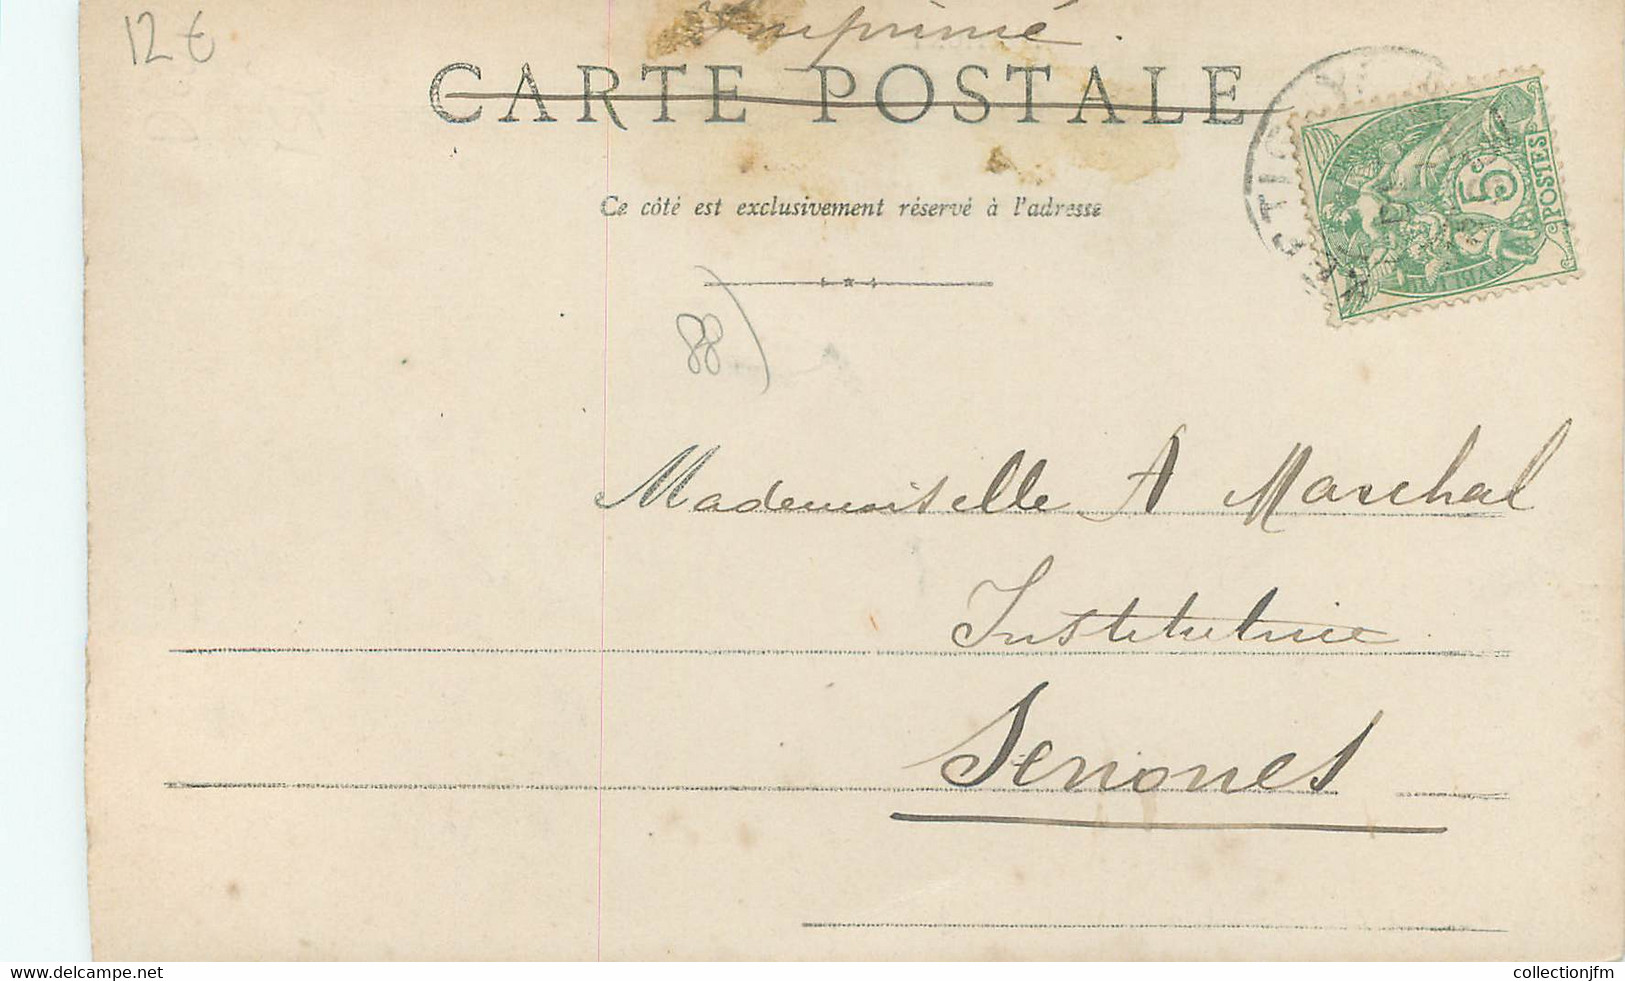 12 €
Imprimé.
CARTE POSTALE
Ce côté est exclusivement réservé à l'adresse
5c
POSTES
88)
Mademoiselle A Marchal
Institutrice
Senones
delcampe.net
collectionjfm